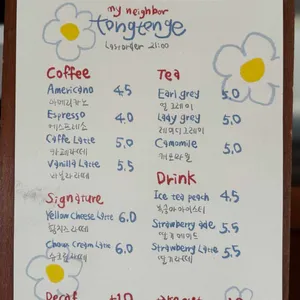 my neighbor
tongtonge
Last order 21:00
Coffee
Americano 4.5
아메리카노
Espresso 4.0
에스프레소
Caffe Latte 5.0
카페라떼
Vanilla Latte 5.5
바닐라라떼
Signature
Yellow Cheese Latte 6.0
Choux Cream Latte 6.0
슈크림라떼
Decaf +1.0
Tea
Earl grey 5.0
얼그레이
Lady grey 5.0
레이디그레이
Camomile 5.0
캐모마일
Drink
Ice tea peach 4.5
복숭아 아이스티
Strawberry ade 5.5
딸기에이드
Strawberry Latte 5.5
딸기라떼